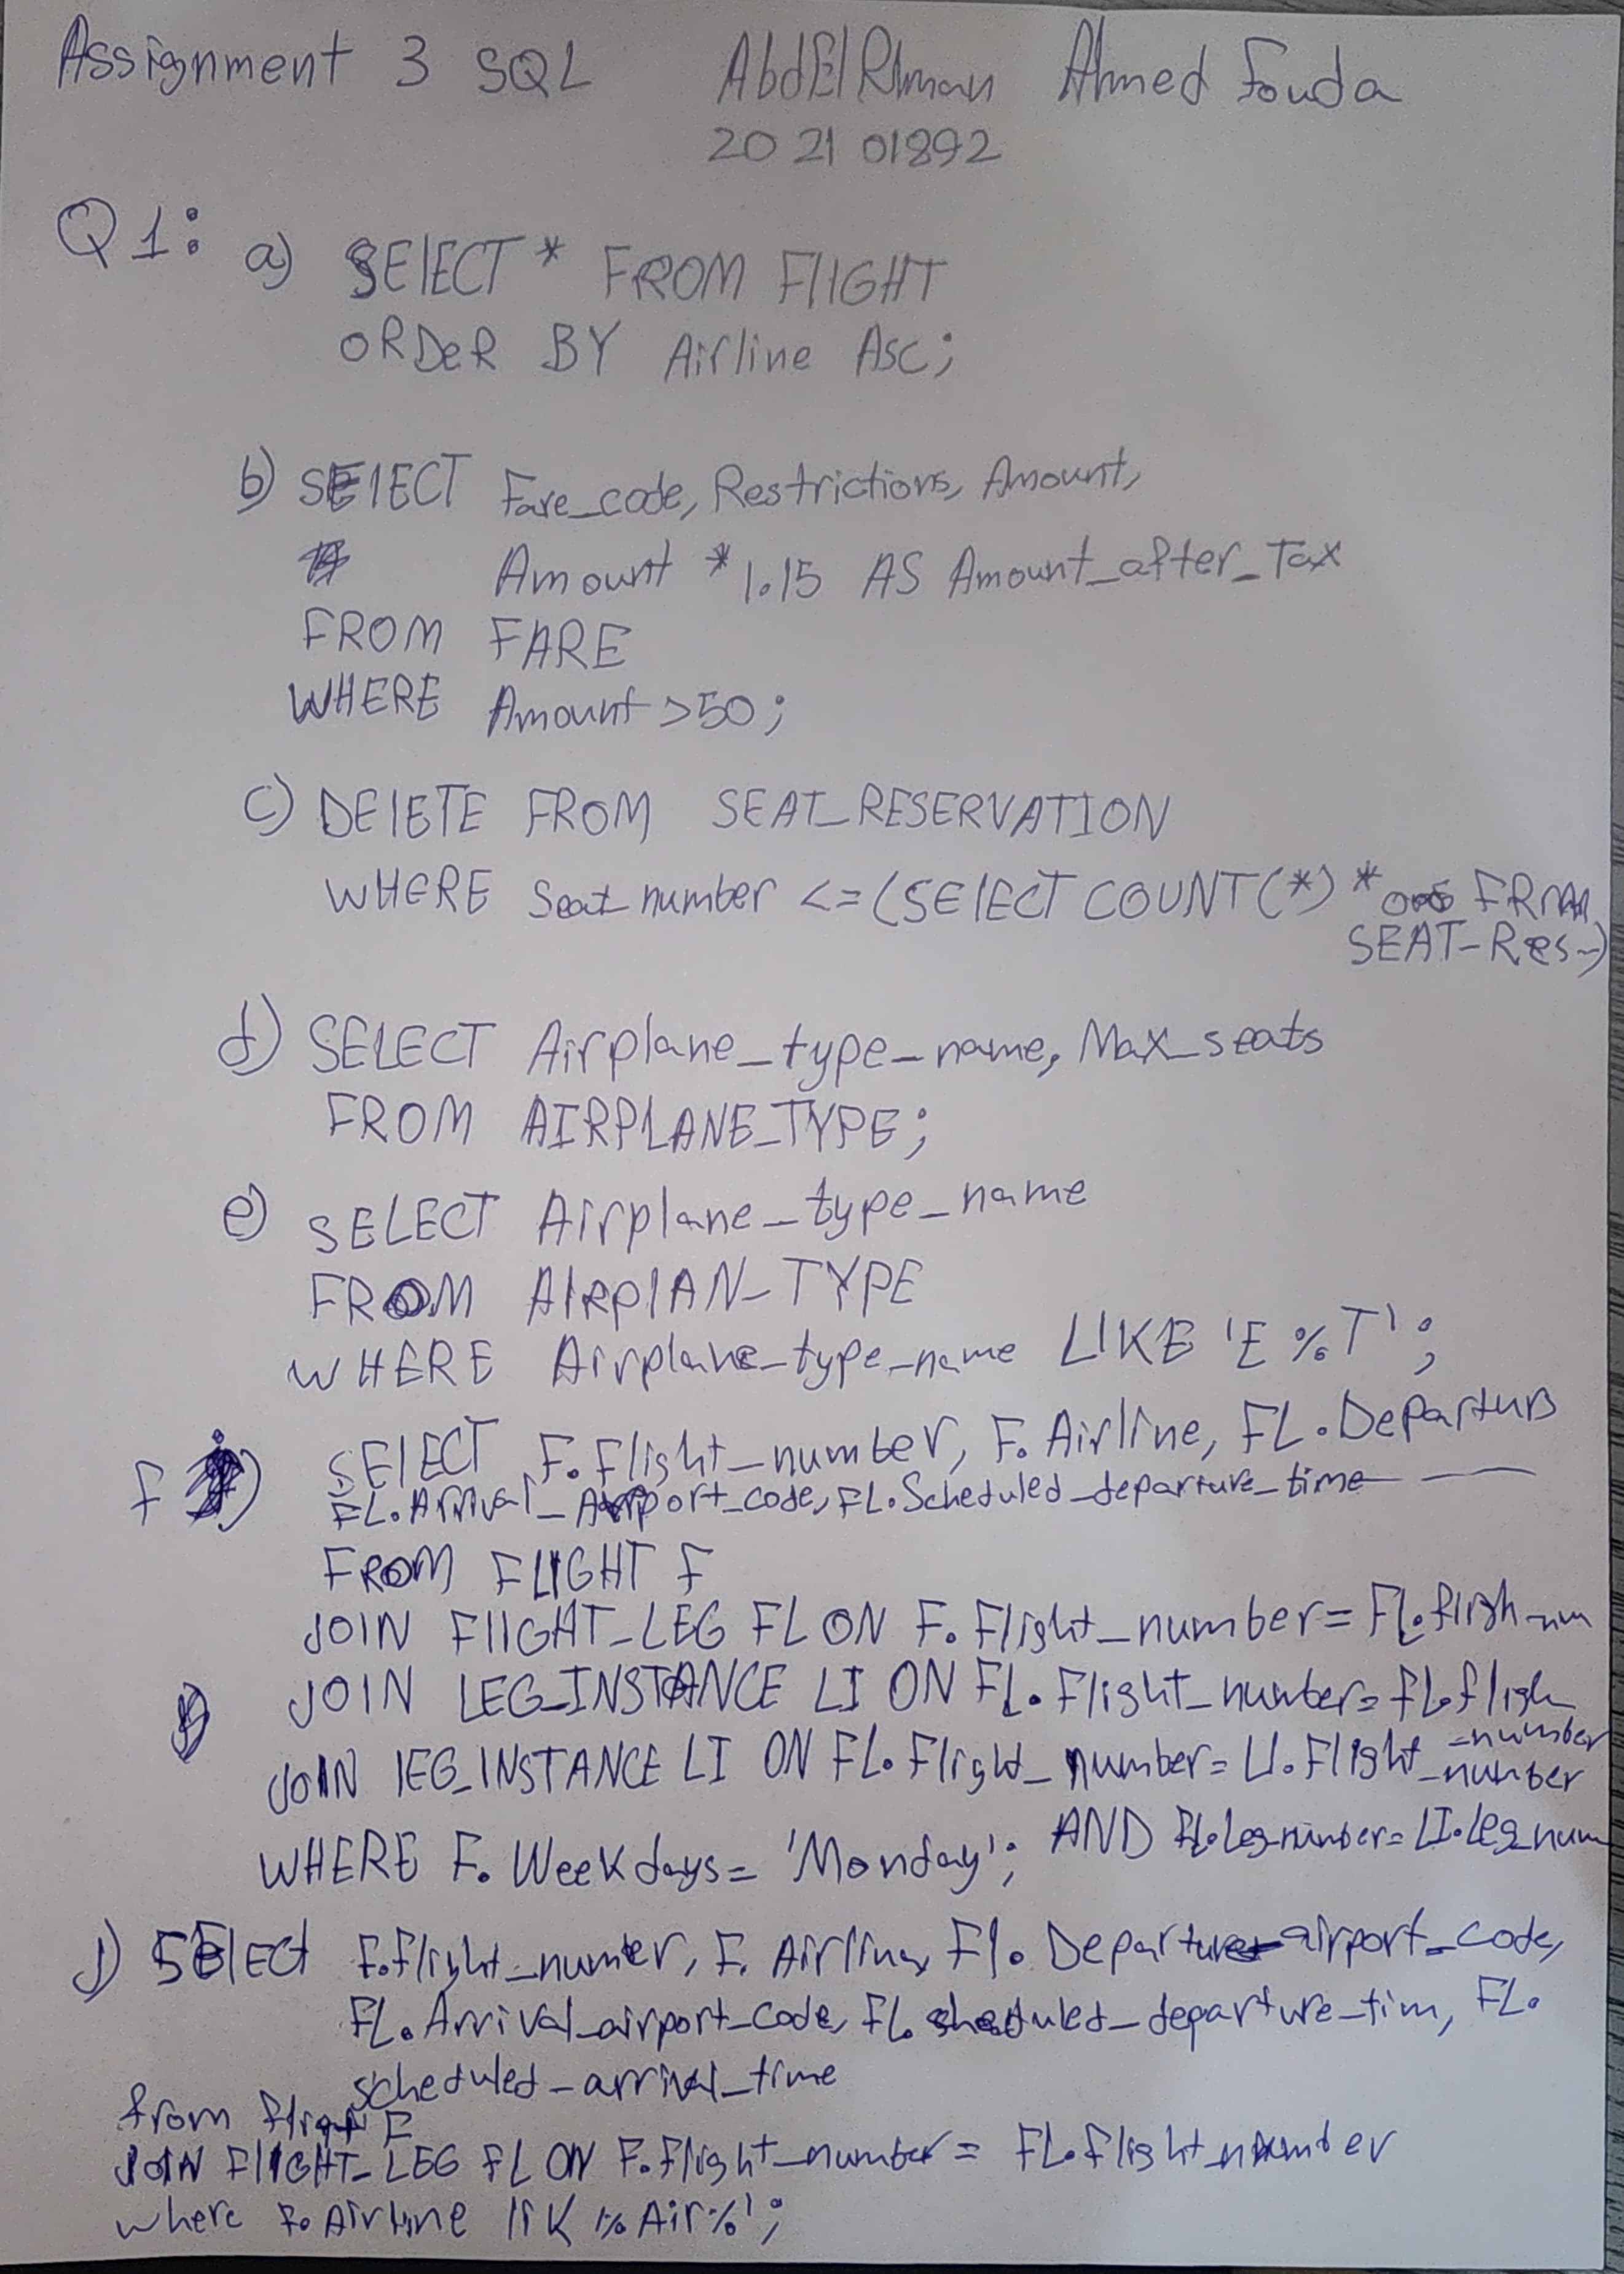 Assignment 3 SQL AbdElRhman Ahmed Fouda
20 21 01892
Q1: a) SElECT * FROM FlIGHT
ORDeR BY Airline Asc;
b) SElECT Fare_code, Restrictions, Amount,
Amount * 1.15 AS Amount_after_Tax
FROM FARE
WHERE Amount >50;
c) DElETE FROM SEAT_RESERVATION
WHERE Seat_number <= (SElECT COUNT(*) * FROM
SEAT-Res-)
d) SELECT Airplane_type_name, Max_seats
FROM AIRPLANE_TYPE;
e) SELECT Airplane_type_name
FROM AIRplAN_TYPE
WHERE Airplane_type_name LIKE 'E %T';
F) SElECT F.Flight_number, F. Airline, FL.Departure
FL.Arrival_Airport_code, FL.Scheduled_departure_time
FROM FLIGHT F
JOIN FlIGHT_LEG FL ON F.Flight_number = FL.fligh_num
JOIN LEG_INSTANCE LI ON FL.Flight_number= fL.fligh
_number
JOIN lEG_INSTANCE LI ON FL.Flight_number= LI.Flight_number
WHERE F. Weekdays= 'Monday'; AND FL.Leg_number= LI.Leg_num
j) SElECT F.Flight_number, F. Airline, Fl. Departure_airport_code,
FL.Arrival_airport_code, FL.scheduled_departure_tim, FL.
scheduled_arrival_time
from flight F
JOIN FlIGHT_LEG FL ON F.flight_number = FL.flight_number
where F.Airline liK '%Air%';